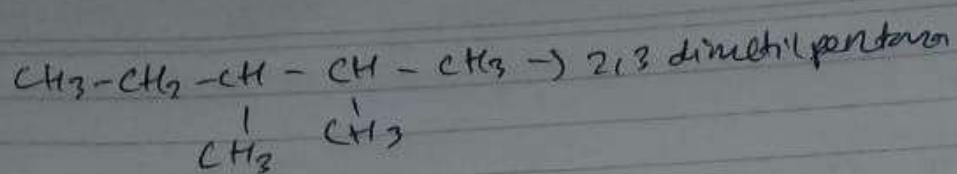 CH3-CH2-CH-CH-CH3 → 2,3 dimetilpentana
| |
CH3 CH3